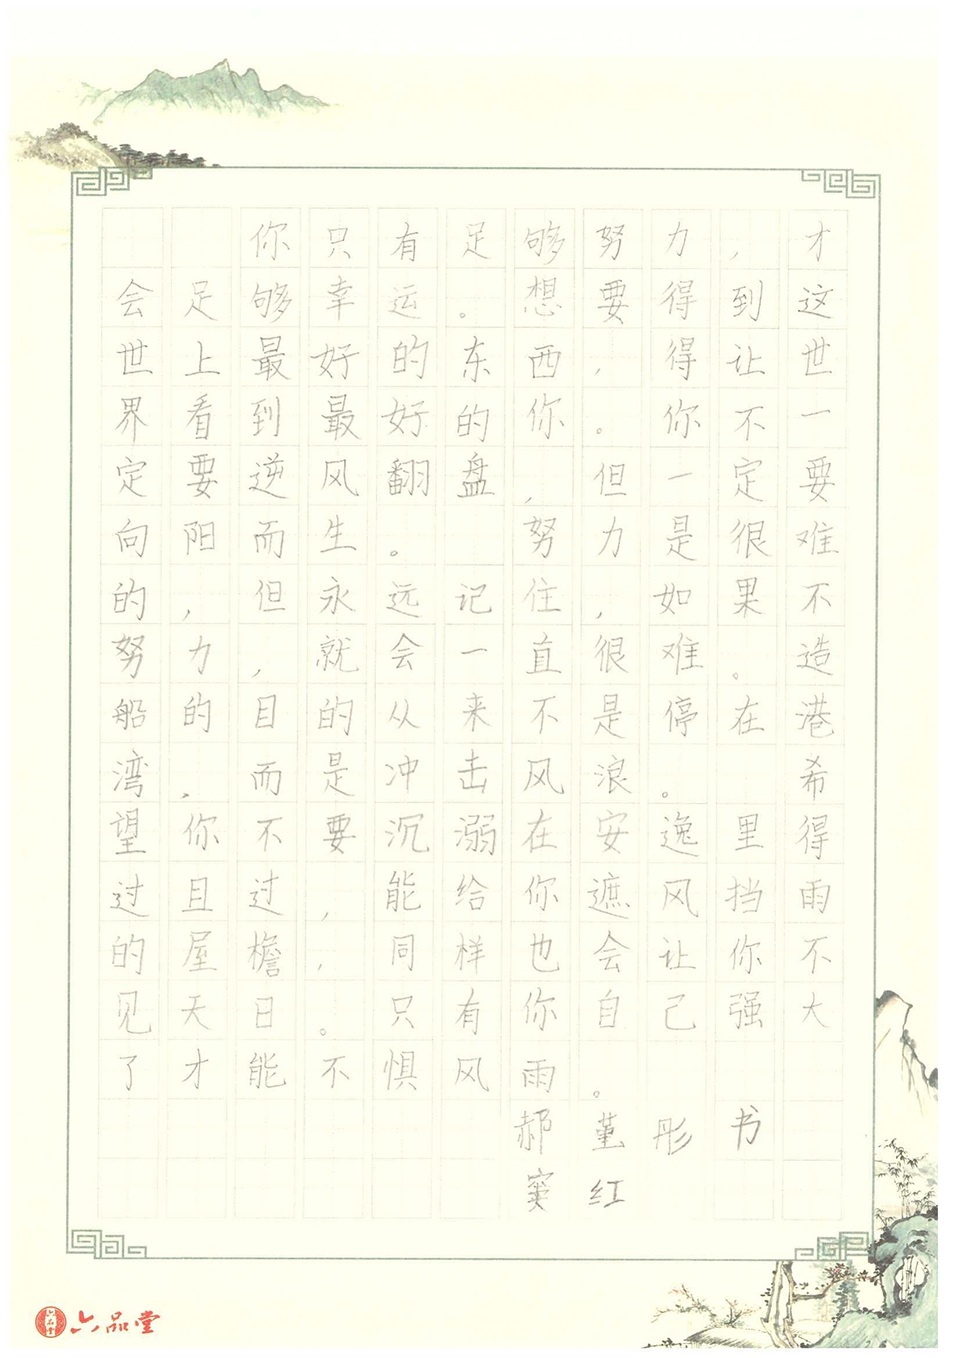 你只有足够努力，才
会足够幸运。想要得到这
世上最好的东西，得让世
界看到最好的你。你不一
定要逆风翻盘，但一定要
向阳而生。努力是很难
的，但永远记住，如果不
努力，就会一直很难。造
船的目的从来不是停在港
湾，而是冲击风浪。希
望你不要沉溺在安逸里得
过且过，能给你遮风挡雨
的屋檐，同样也会让你不
见天日。只有你自己强大
了才能不惧风雨。
郝堇彤书
窦红
六品堂
六品堂